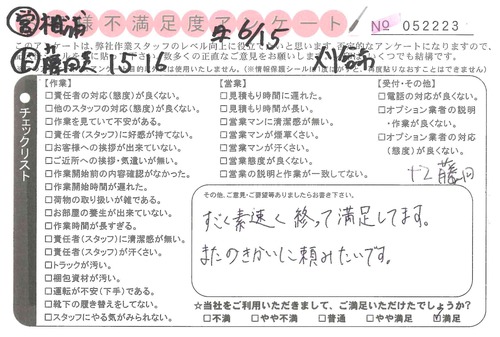 営
様不満足度アンケート
生6/15
№ 052223
このアンケートは、弊社作業スタッフのレベル向上に役立て
正直なご意見をお
15 16
チェックリスト
【作業】
□責任者の対応(態度)が良くない。
□他のスタッフの対応(態度)が良くない。
□作業を見ていて不安がある。
□責任者(スタッフ)に好感が持てない。
□お客様への挨拶が出来ていない。
□ご近所への挨拶・気遣いが無い。
□作業開始前の内容確認がなかった。
□作業開始時間が遅れた。
□荷物の取り扱いが雑である。
□お部屋の養生が出来ていない。
□作業時間が長すぎる。
□責任者(スタッフ)に清潔感が無い。
□責任者(スタッフ)が汗くさい。
□トラックが汚い。
□梱包資材が汚い。
□運転が不安(下手)である。
□靴下の履き替えをしてない。
□スタッフにやる気がみられない。
【営業】
□見積もり時間に遅れた。
□見積もり時間が長い。
□営業マンに清潔感が無い。
□営業マンが煙草くさい。
□営業マンが汗くさい。
□営業態度が良くない。
□営業の説明と作業が一致してない。
【受付・その他】
□電話の対応が良くない。
□オプション業者の説明・作業が良くない。
□オプション業者の対応(態度)が良くない。
その他、ご意見・ご要望等ありましたらお書き下さい。
すごく素速く終って満足してます。
またのきかいに頼みたいです。
☆当社をご利用いただきまして、ご満足いただけたでしょうか?
□不満 □やや不満 □普通 □やや満足 ☑満足